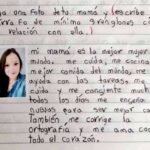 ga una foto de tu mamá y (escribe
árrafo de mínimo 5 renglones c
relación con ella.)
mi mamá es la mejor mujer
mundo, me cuida, me cocina
mejor comida del mundo, me
ayuda con las tareas, me
cuida y me consiente much
todos los días me enseña
cosas para ser mejor
También me corrige la
ortografía y me ama con
todo el corazón.